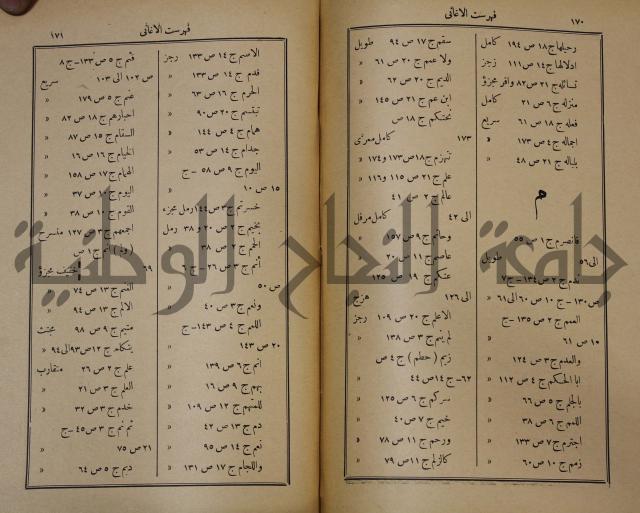 ١٧٠
فهرست الاغاني
رحيلها ج ١٨ ص ١٩٤ كامل
اذلالها ج ١٤ ص ١١١ رجز
تسائله ج ٢١ ص ٨٢ وافر مجزؤ
منزله ج ٦ ص ٢١ كامل
فعله ج ١٨ ص ٦١ سريع
اجماله ج ٤ ص ١٧٣ «
بلباله ج ٢١ ص ٤٨ «
م
فانصرم ج ١ ص ٥٥
الى ٥٦ طويل
ندم ج ٢ ص ١٣٤ - ج ٧
ص ١٣٠ - ج ١٠ ص ٦٠ الى ٦١ «
العمم ج ٢ ص ١٣٥ - ج
١٠ ص ٦١ «
والعدم ج ٣ ص ١٢٤ «
ابا الحكم ج ٤ ص ١١٢ «
بالجلم ج ٥ ص ٦٦ «
اللمم ج ٦ ص ٣٨ «
اجترم ج ٧ ص ١٣٣ «
زمم ج ١٠ ص ٦٠ «
سقم ج ١٧ ص ٩٤ طويل
ولا عمم ج ٢٠ ص ٦١ «
الديم ج ٢٠ ص ٦٢ «
ابن عم ج ٢١ ص ١٤٥ «
نحتكم ج ١٨ ص
١٧٣ كامل معرّى
تهزم ج ١٨ ص ١٧٣ و ١٧٤ «
علم ج ٢١ ص ١١٥ و ١١٦ «
عالم ج ٢ ص ٤١
الى ٤٢ كامل مرفل
وحاتم ج ٩ ص ١٥٧ «
عاصم ج ١١ ص ٢٠ «
عنكم ج ١٩ ص ١٢٥
الى ١٢٦ هزج
الاعلم ج ٢٠ ص ١٠٩ رجز
لم ينم ج ٣ ص ١٣٨ «
زيم ( حطم ) ج ٤ ص
٦٢ - ج ١٤ ص ٤٤ «
سركم ج ٦ ص ١٢٥ «
خيم ج ٧ ص ٤٠ «
ورحم ج ١١ ص ٧٨ «
كالزلم ج ١١ ص ٧٩ «
فهرست الاغاني
١٧١
الاسم ج ١٤ ص ١٣٣ رجز
قدم ج ١٤ ص ١٣٣ «
الحرم ج ١٦ ص ٦٣ «
تبتسم ج ٢٠ ص ٩٠ «
همام ج ٤ ص ١٤٤ «
جدام ج ١٤ ص ٥٣ «
اليوم ج ٩ ص ٥٨ - ج
١٥ ص ١٠ «
خسرتم ج ٣ ص ١٤٤ رمل مجزء
بخيم ج ٢ ص ٢٠ و ٣٨ رمل
الحم ج ٢ ص ٣٨ «
أنم ج ٣ ص ٢٦ - ج ٦
ص ٥٠ «
ونعم ج ٣ ص ٤٠ «
اللمم ج ٤ ص ١٤٣ - ج
٢٠ ص ١٤٣ «
انم ج ٦ ص ١٣٩ «
بهم ج ٩ ص ١٦ «
للمتهم ج ١٢ ص ١٠٩ «
دم ج ١٣ ص ٤٢ «
نعم ج ١٤ ص ٩٥ «
واللجام ج ١٧ ص ١٣١ «
قثم ج ٥ ص ١٣٣ - ج ٨
ص ١٠٢ الى ١٠٣ سريع
غنم ج ٥ ص ١٧٩ «
احبارهم ج ١٨ ص ٨٢ «
السقام ج ١٥ ص ٨٧ «
الخيام ج ١٦ ص ١٦ «
الحمام ج ١٧ ص ١٥٨ «
اليوم ج ١٠ ص ٣٧ «
النوم ج ١٠ ص ٣٨ «
اجمعهم ج ٣ ص ١٢٧ منسرح
نم ج ١ ص
٦٩ خفيف مجزؤ
الغنم ج ١٣ ص ٧٤ «
الالم ج ١٣ ص ٩٤ «
متيم ج ٩ ص ٩٨ مجتث
ج ١٢ ص ٩٣ الى ٩٤ «
علم ج ٢ ص ٢٦ متقارب
العلم ج ٣ ص ٢١ «
خدم ج ٣ ص ٣٢ «
ثم نم ج ٣ ص ٤٥ - ج
٢١ ص ٧٥ «
ديم ج ٥ ص ٦٤ «
جامعة النجاح الوطنية